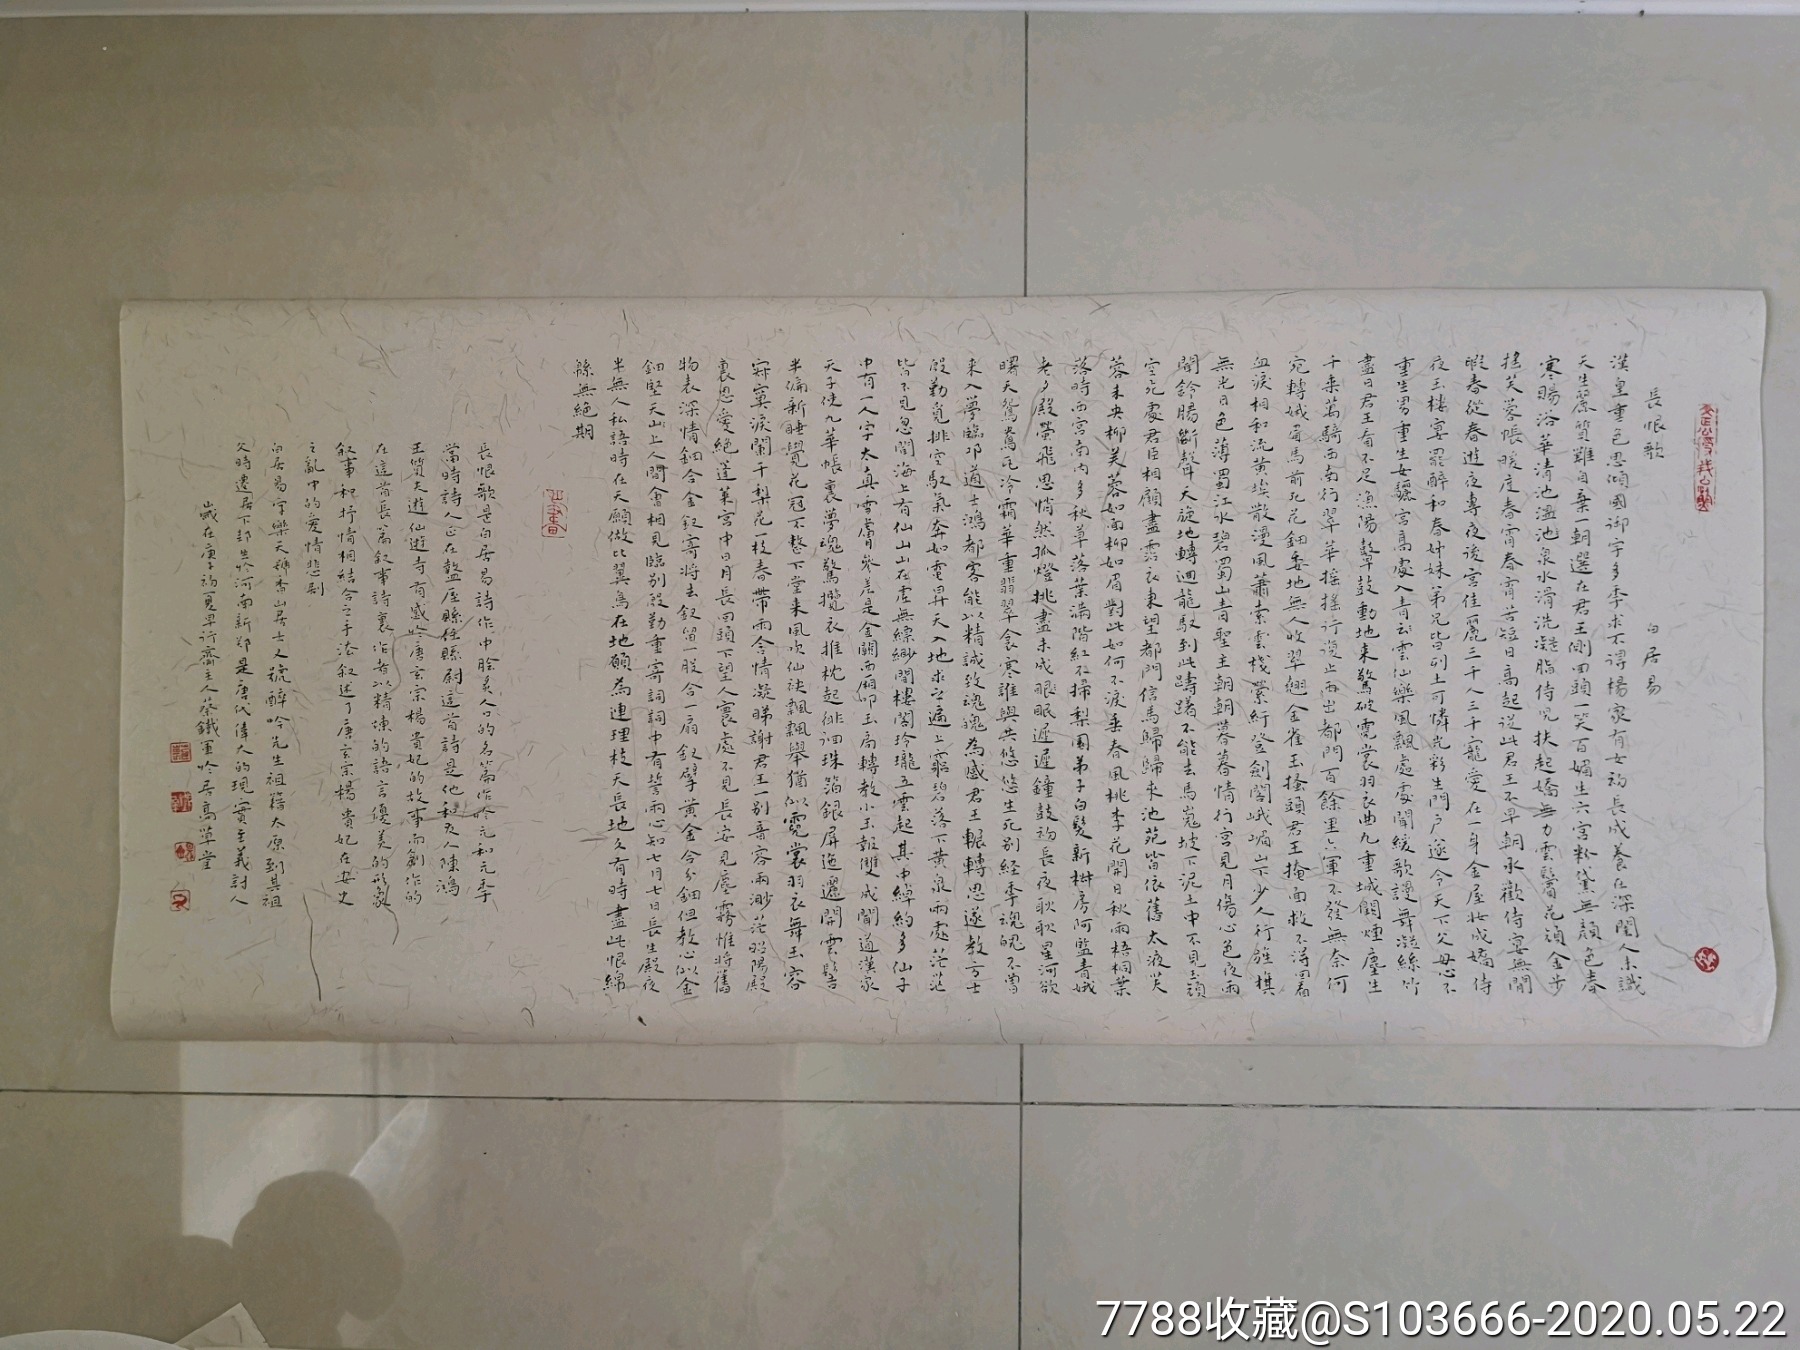 長恨歌　白居易
漢皇重色思傾國御宇多季求不得楊家有女初長成養在深閨人未識
天生麗質難自棄一朝選在君王側回頭一笑百媚生六宮粉黛無顏色春
寒賜浴華清池溫池泉水滑洗凝脂侍兒扶起嬌無力雲鬢花顏金步
搖芙蓉帳暖度春宵春宵苦短日高起從此君王不早朝承歡侍宴無閒
暇春從春遊夜專夜後宮佳麗三千人三千寵愛在一身金屋妝成嬌侍
夜玉樓宴罷醉和春姊妹弟兄皆列土可憐光彩生門戶遂令天下父母心不
重生男重生女驪宮高處入青雲仙樂風飄處處聞緩歌謾舞凝絲竹
盡日君王看不足漁陽鼙鼓動地來驚破霓裳羽衣曲九重城闕煙塵生
千乘萬騎西南行翠華搖搖行復止西出都門百餘里六軍不發無奈何
宛轉娥眉馬前死花鈿委地無人收翠翹金雀玉搔頭君王掩面救不得回看
血淚相和流黃埃散漫風蕭索雲棧縈紆登劍閣峨嵋山下少人行旌旗
無光日色薄蜀江水碧蜀山青聖主朝朝暮暮情行宮見月傷心色夜雨
聞鈴腸斷聲天旋地轉迴龍馭到此躊躇不能去馬嵬坡下泥土中不見玉顏
空死處君臣相顧盡霑衣東望都門信馬歸歸來池苑皆依舊太液芙
蓉未央柳芙蓉如面柳如眉對此如何不淚垂春風桃李花開日秋雨梧桐葉
落時西宮南內多秋草落葉滿階紅不掃梨園弟子白髮新椒房阿監青娥
老夕殿螢飛思悄然孤燈挑盡未成眠眠遲遲鐘鼓初長夜耿耿星河欲
曙天鴛鴦瓦冷霜華重翡翠衾寒誰與共悠悠生死別經季魂魄不曾
來入夢臨邛道士鴻都客能以精誠致魂魄為感君王輾轉思遂教方士
殷勤覓排空馭氣奔如電昇天入地求之遍上窮碧落下黃泉兩處茫茫
皆不見忽聞海上有仙山山在虛無縹緲間樓閣玲瓏五雲起其中綽約多仙子
中有一人字太真雪膚膚參差是金闕西廂叩玉扃轉教小玉報雙成聞道漢家
天子使九華帳裏夢魂驚攬衣推枕起徘徊珠箔銀屏迤邐開雲髻
半偏新睡覺花冠不整下堂來風吹仙袂飄飄舉猶似霓裳羽衣舞玉容
寂寞淚闌干梨花一枝春帶雨含情凝睇謝君王一別音容兩渺茫昭陽殿
裏恩愛絕蓬萊宮中日月長回頭下望人寰處不見長安見塵霧惟將舊
物表深情鈿合金釵寄將去釵留一股合一扇釵擘黃金合分鈿但教心似金
鈿堅天上人間會相見臨別殷勤重寄詞詞中有誓兩心知七月七日長生殿夜
半無人私語時在天願做比翼鳥在地願為連理枝天長地久有時盡此恨綿
綿無絕期
長恨歌是白居易詩作中膾炙人口的名篇作於元和元季
當時詩人正在盩厔縣任縣尉這首詩是他和友人陳鴻
王質夫遊仙遊寺有感於唐玄宗楊貴妃的故事而創作的
在這首長篇敘事詩裏作者以精煉的語言優美的形象
敘事和抒情相結合之手法敘述了唐玄宗楊貴妃在安史
之亂中的愛情悲劇
白居易字樂天號香山居士又號醉吟先生祖籍太原到其祖
父時遷居下邽生於河南新鄭是唐代偉大的現實主義詩人
歲在庚子初夏墨行齋主人蔡鐵軍於居高草堂
7788收藏@S103666-2020.05.22